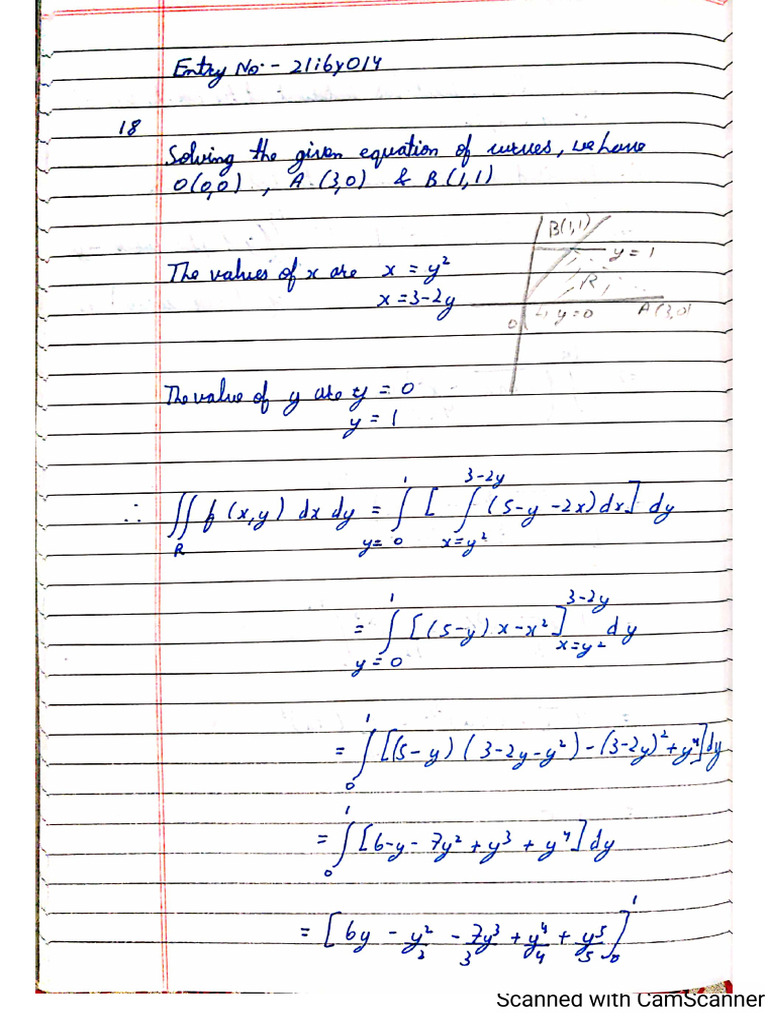 Entry No:- 21iby014
18
Solving the given equation of curves, we have
O(0,0) , A (3,0) & B(1,1)
B(1,1)
y=1
R
O
y=0
A(3,0)
The values of x are x = y²
x = 3-2y
The value of y are y = 0
y = 1
∴ ∬_R f(x,y) dx dy = ∫_{y=0}^{1} [ ∫_{x=y²}^{3-2y} (5-y-2x)dx] dy
= ∫_{y=0}^{1} [(5-y)x-x²]_{x=y²}^{3-2y} dy
= ∫_0^1 [(5-y)(3-2y-y²)-(3-2y)²+y⁴]dy
= ∫_0^1 [6-y-7y²+y³+y⁴]dy
= [6y - y²/2 - 7y³/3 + y⁴/4 + y⁵/5]_0^1
Scanned with CamScanner